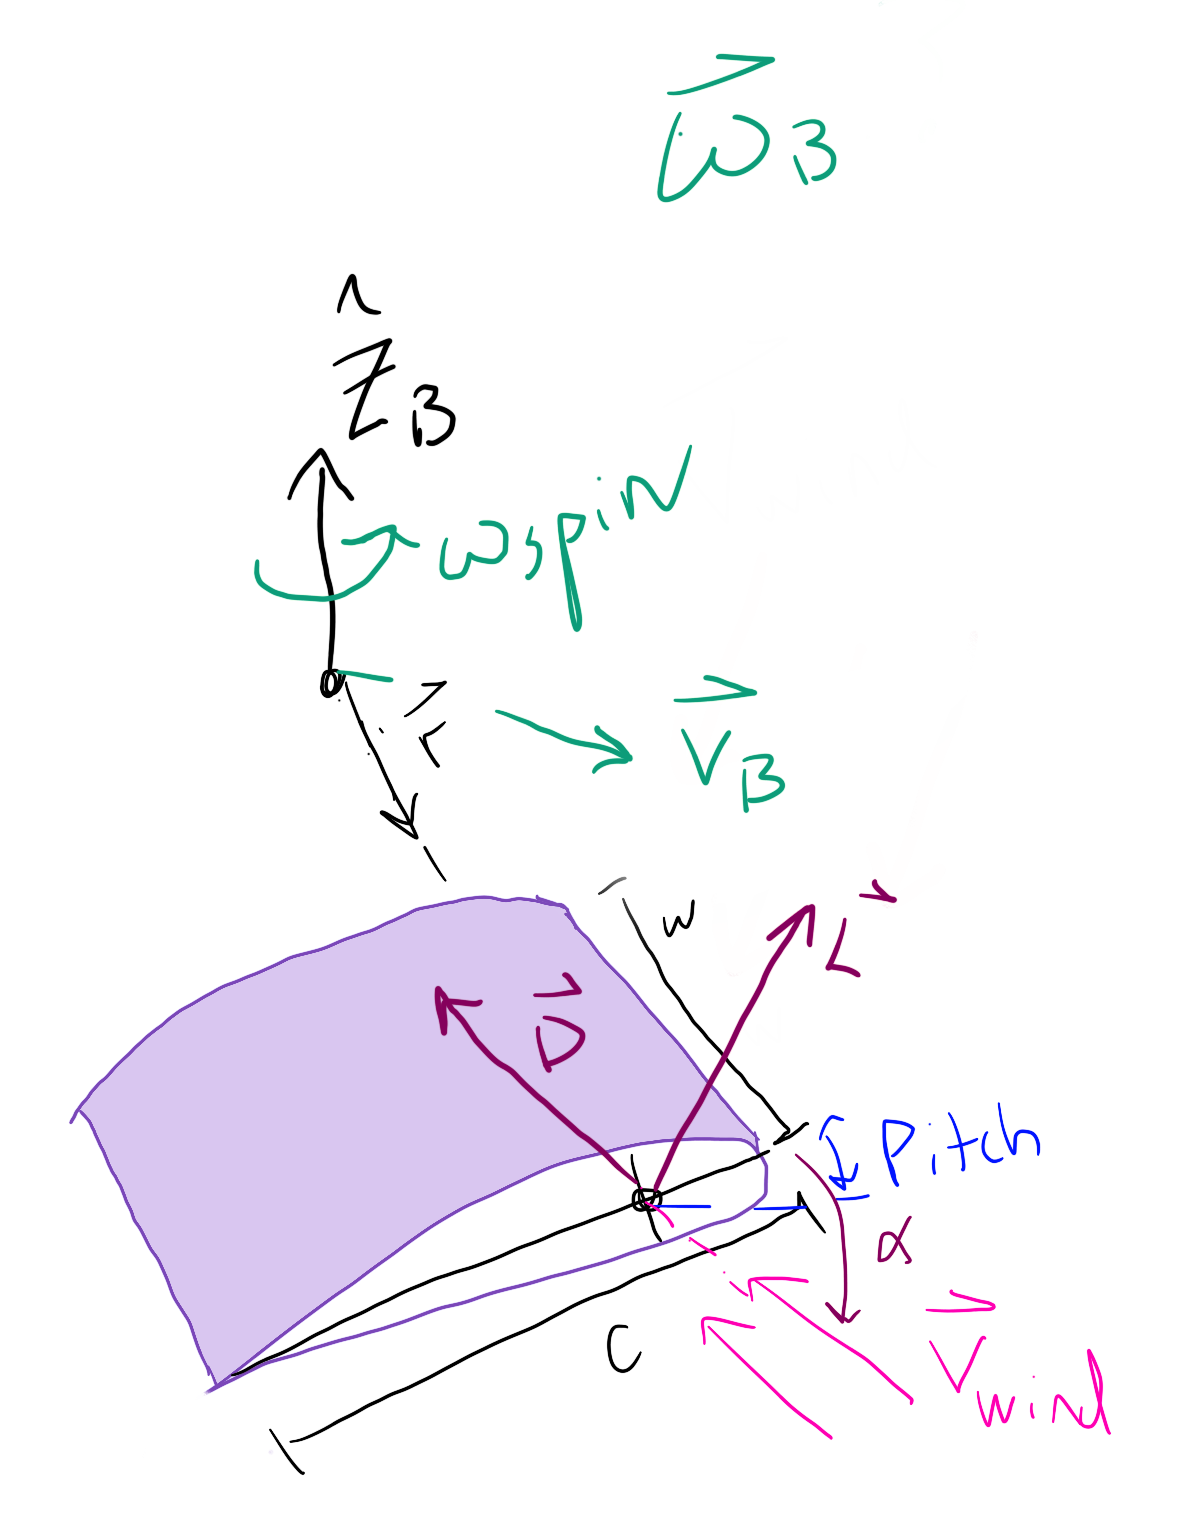 ω⃗ B
ẑ B
ωspin
r⃗
v⃗ B
w
L⃗
D⃗
Pitch
α
c
v⃗ wind